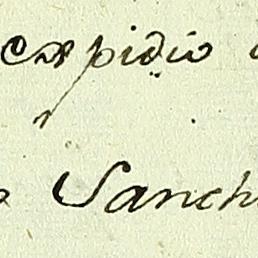 expidio
Sanch